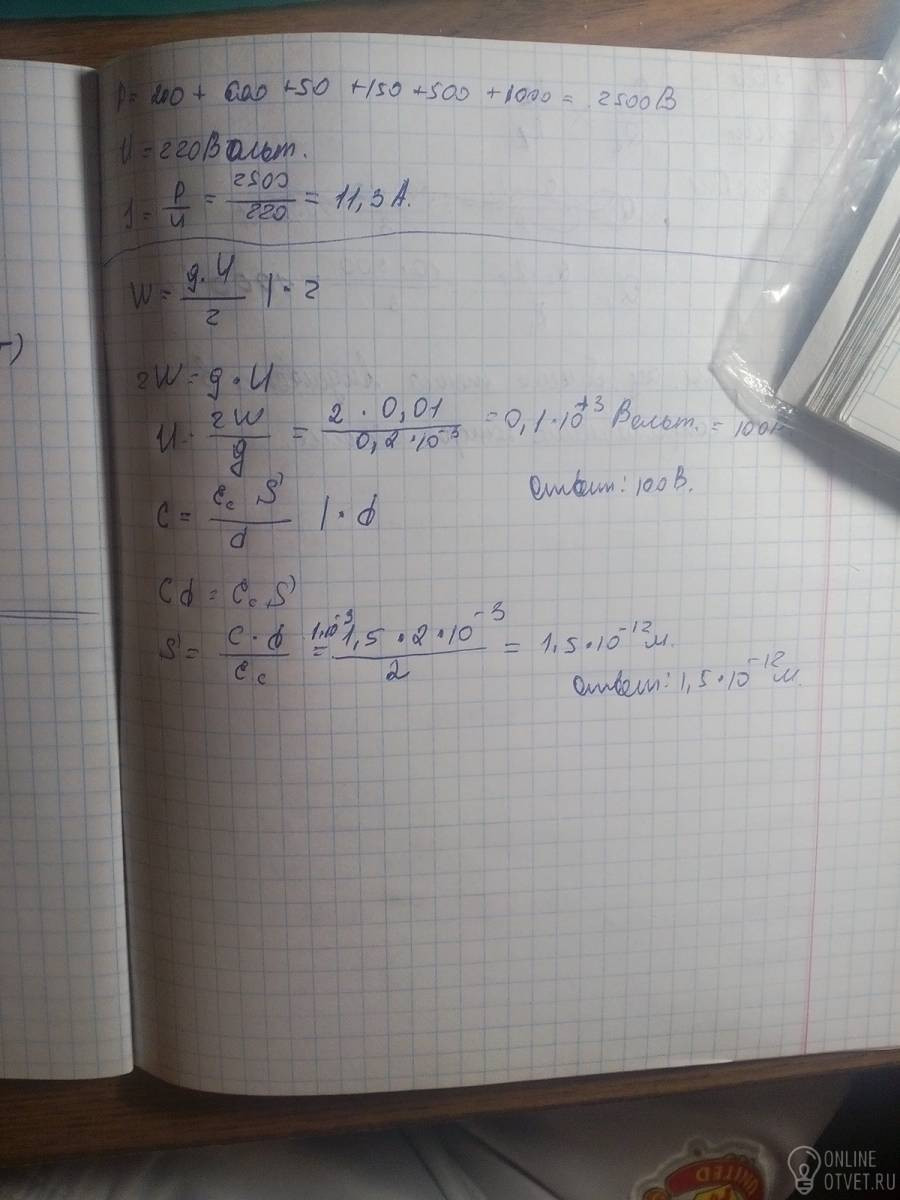 P= 200 + 600 +50 +150 +500 +1000 = 2500В
U = 220Вольт.
J = P/U = 2500/220 = 11,3 А.
W = g·U/2 | · 2
2W = g · U
U = 2W/g = 2 · 0,01/0,2·10⁻³ = 0,1·10⁺³ Вольт. = 100
Ответ: 100В.
C = Ɛc S/d | · d
Cd = Ɛc S
S = C·d/Ɛc = 1,5·2·10⁻³/2 = 1,5·10⁻¹² м.
Ответ: 1,5·10⁻¹² м.
ONLINE
OTVET.RU